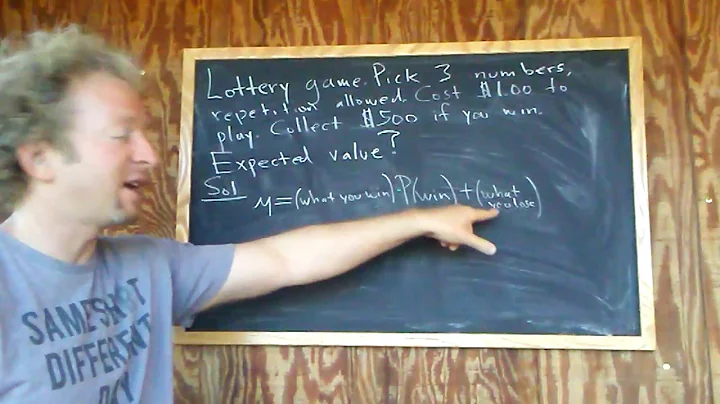 Lottery game. Pick 3 numbers,
repetition allowed. Cost $1.00 to
play. Collect $500 if you win.
Expected value?
Sol
M=(what you win)·P(win)+(what
you lose)
SAME SHIT
DIFFERENT
DAY